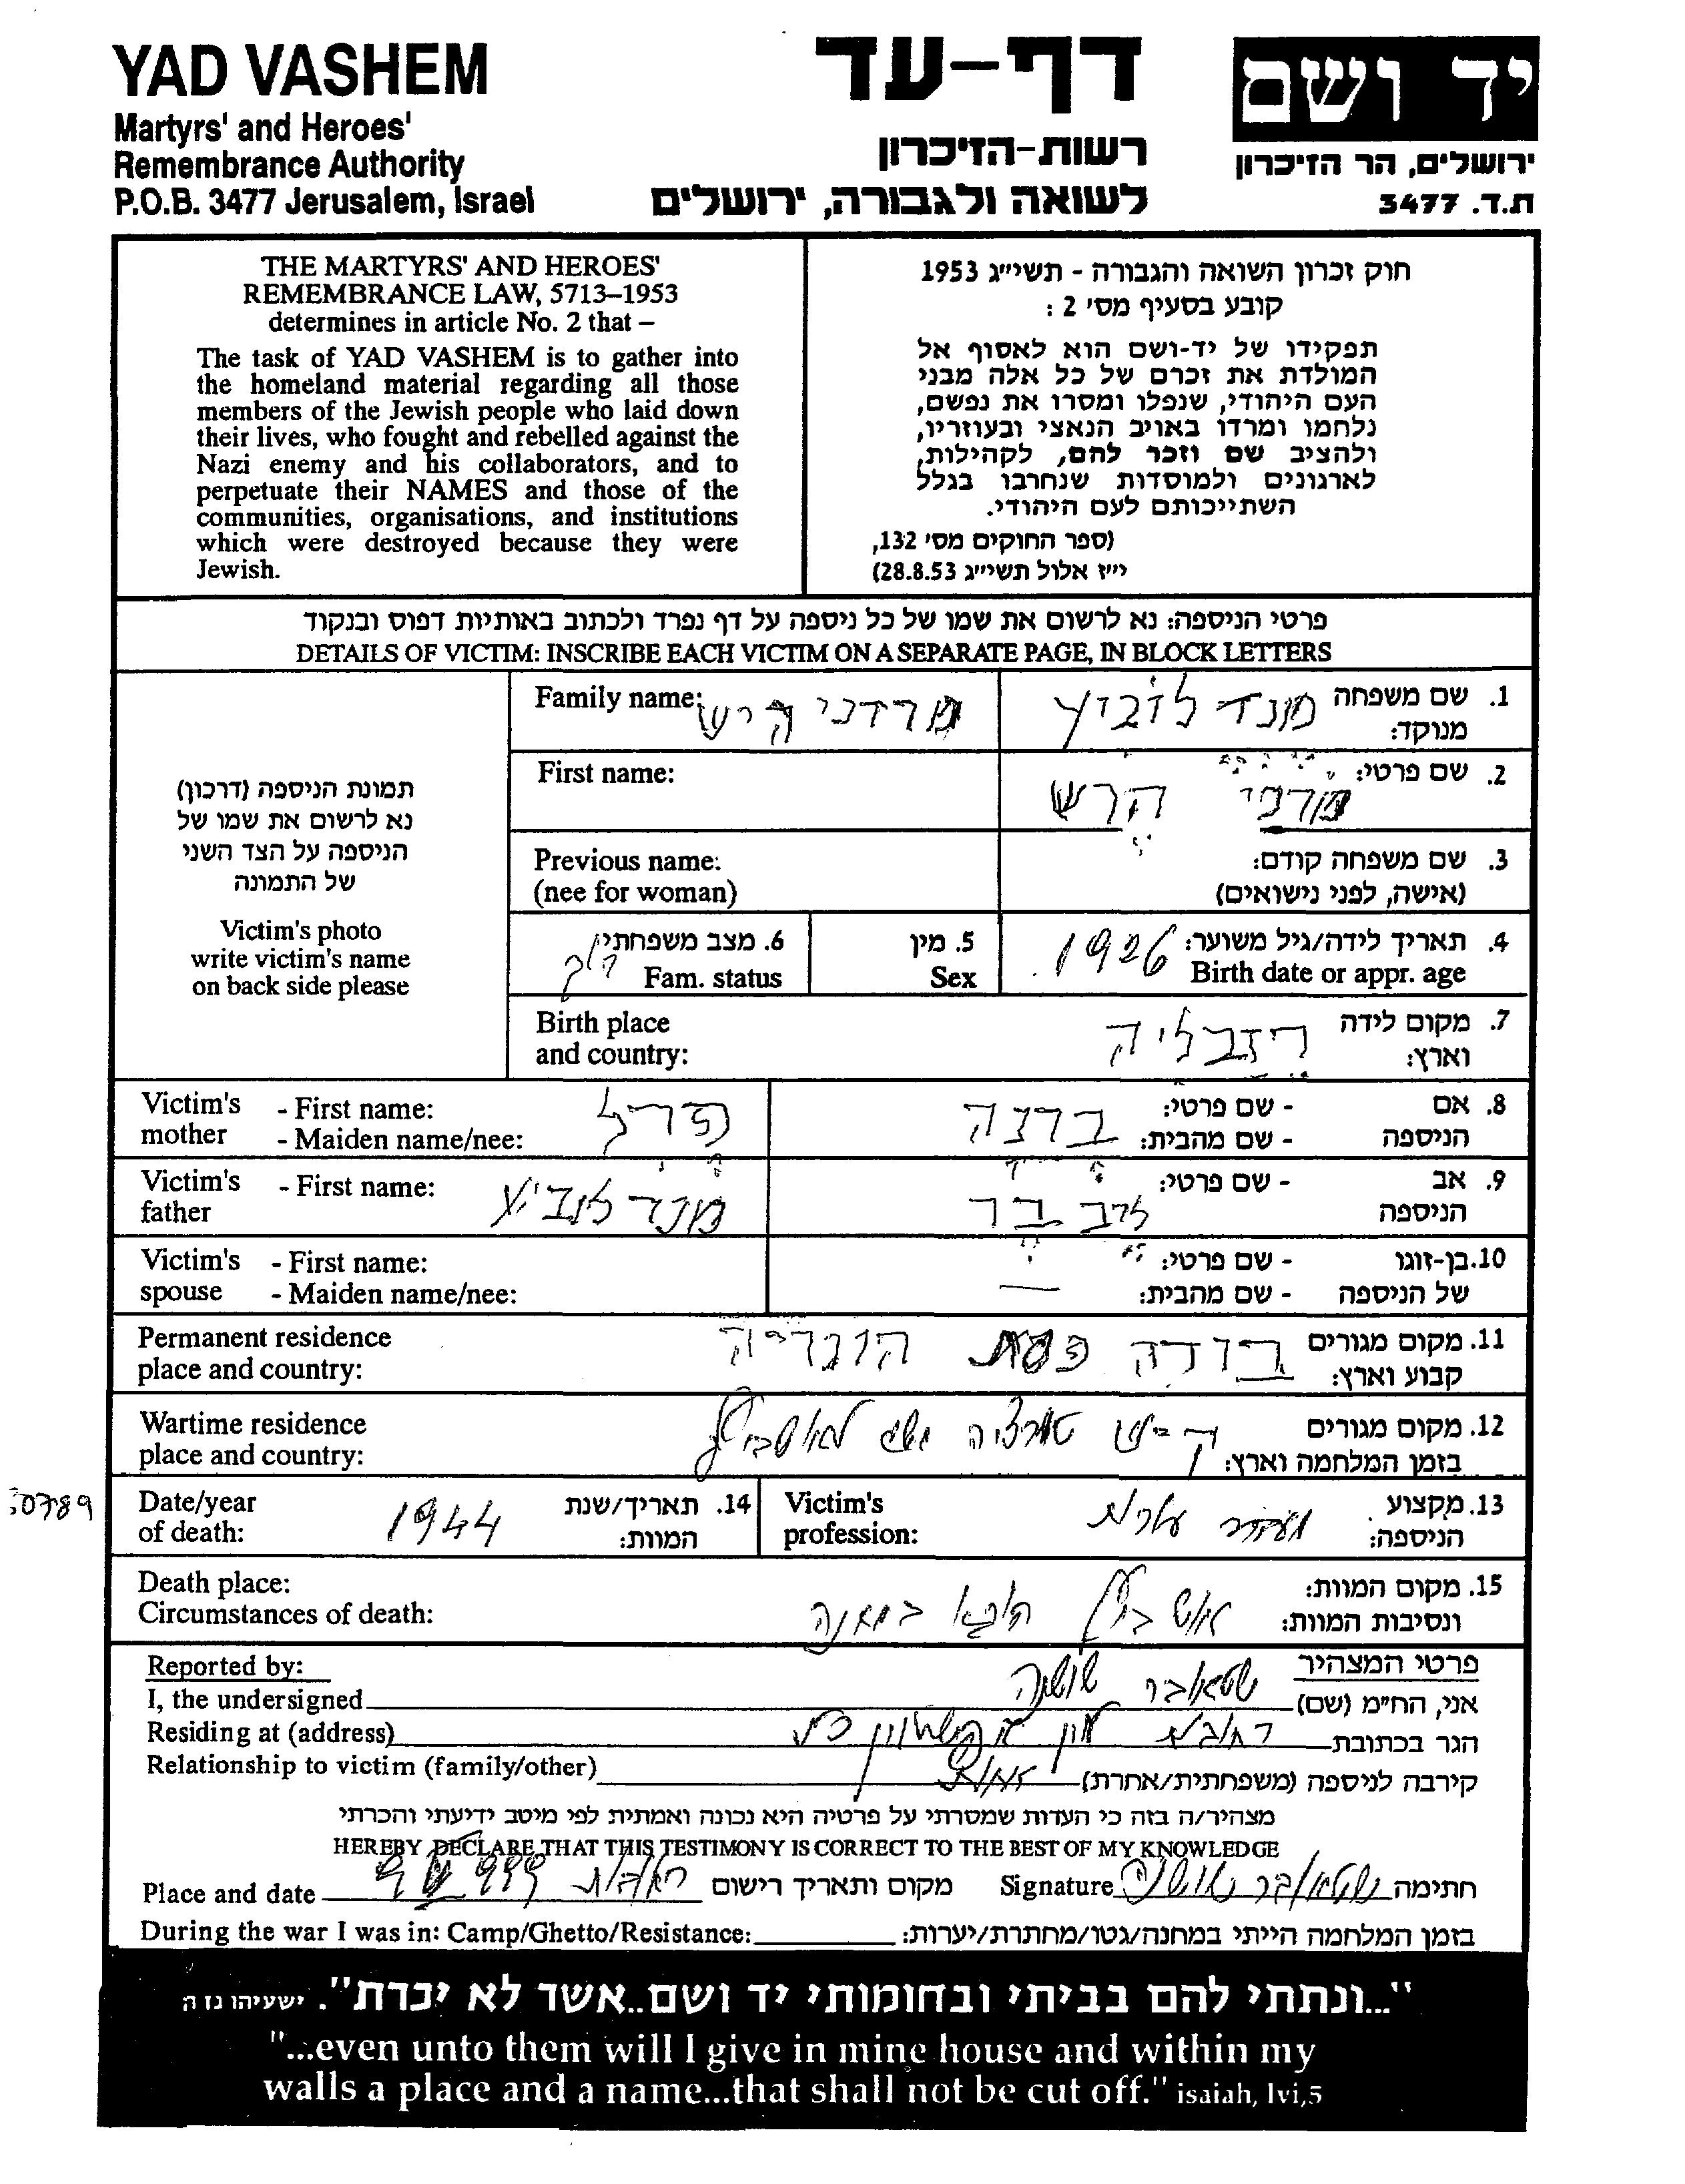 YAD VASHEM
Martyrs' and Heroes'
Remembrance Authority
P.O.B. 3477 Jerusalem, Israel
דף-עד
רשות-הזיכרון
לשואה ולגבורה, ירושלים
יד ושם
ירושלים, הר הזיכרון
ת.ד. 3477
THE MARTYRS' AND HEROES'
REMEMBRANCE LAW, 5713–1953
determines in article No. 2 that –
The task of YAD VASHEM is to gather into
the homeland material regarding all those
members of the Jewish people who laid down
their lives, who fought and rebelled against the
Nazi enemy and his collaborators, and to
perpetuate their NAMES and those of the
communities, organisations, and institutions
which were destroyed because they were
Jewish.
חוק זכרון השואה והגבורה - תשי״ג 1953
קובע בסעיף מס' 2 :
תפקידו של יד-ושם הוא לאסוף אל
המולדת את זכרם של כל אלה מבני
העם היהודי, שנפלו ומסרו את נפשם,
נלחמו ומרדו באויב הנאצי ובעוזריו,
ולהציב שם וזכר להם, לקהילות,
לארגונים ולמוסדות שנחרבו בגלל
השתייכותם לעם היהודי.
(ספר החוקים מס' 132,
י״ז אלול תשי״ג 28.8.53)
פרטי הניספה: נא לרשום את שמו של כל ניספה על דף נפרד ולכתוב באותיות דפוס ובנקוד
DETAILS OF VICTIM: INSCRIBE EACH VICTIM ON A SEPARATE PAGE, IN BLOCK LETTERS
תמונת הניספה (דרכון)
נא לרשום את שמו של
הניספה על הצד השני
של התמונה
Victim's photo
write victim's name
on back side please
1. שם משפחה מנדלוביץ מרדכי הירש Family name:
מנוקד:
2. שם פרטי: מרדכי הרש First name:
3. שם משפחה קודם: Previous name:
(אישה, לפני נישואים) (nee for woman)
4. תאריך לידה/גיל משוער: 1926 5. מין 6. מצב משפחתי
Birth date or appr. age Sex Fam. status רוק
7. מקום לידה Birth place
וארץ: and country:
8. אם - שם פרטי: ברנה פרל Victim's - First name:
הניספה - שם מהבית: mother - Maiden name/nee:
9. אב - שם פרטי: זאב דב מנדלוביץ Victim's - First name:
הניספה father
10. בן-זוגו - שם פרטי: Victim's - First name:
של הניספה - שם מהבית: — spouse - Maiden name/nee:
11. מקום מגורים בודהפסט הונגריה Permanent residence
קבוע וארץ: place and country:
12. מקום מגורים Wartime residence
בזמן המלחמה וארץ: place and country:
30789
13. מקצוע Victim's 14. תאריך/שנת 1944 Date/year
הניספה: profession: המוות: of death:
15. מקום המוות: Death place:
ונסיבות המוות: Circumstances of death:
פרטי המצהיר Reported by:
אני, הח״מ (שם) שושנה I, the undersigned
הגר בכתובת רחובות Residing at (address)
קירבה לניספה (משפחתית/אחרת) אחות Relationship to victim (family/other)
מצהיר/ה בזה כי העדות שמסרתי על פרטיה היא נכונה ואמתית לפי מיטב ידיעתי והכרתי
HEREBY DECLARE THAT THIS TESTIMONY IS CORRECT TO THE BEST OF MY KNOWLEDGE
חתימה Signature מקום ותאריך רישום רחובות Place and date
בזמן המלחמה הייתי במחנה/גטו/מחתרת/יערות: During the war I was in: Camp/Ghetto/Resistance:
"...ונתתי להם בביתי ובחומותי יד ושם..אשר לא יכרת". ישעיהו נו ה
"...even unto them will I give in mine house and within my
walls a place and a name...that shall not be cut off." isaiah, lvi,5